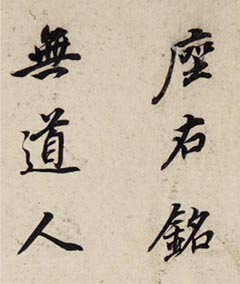 座右銘
無道人